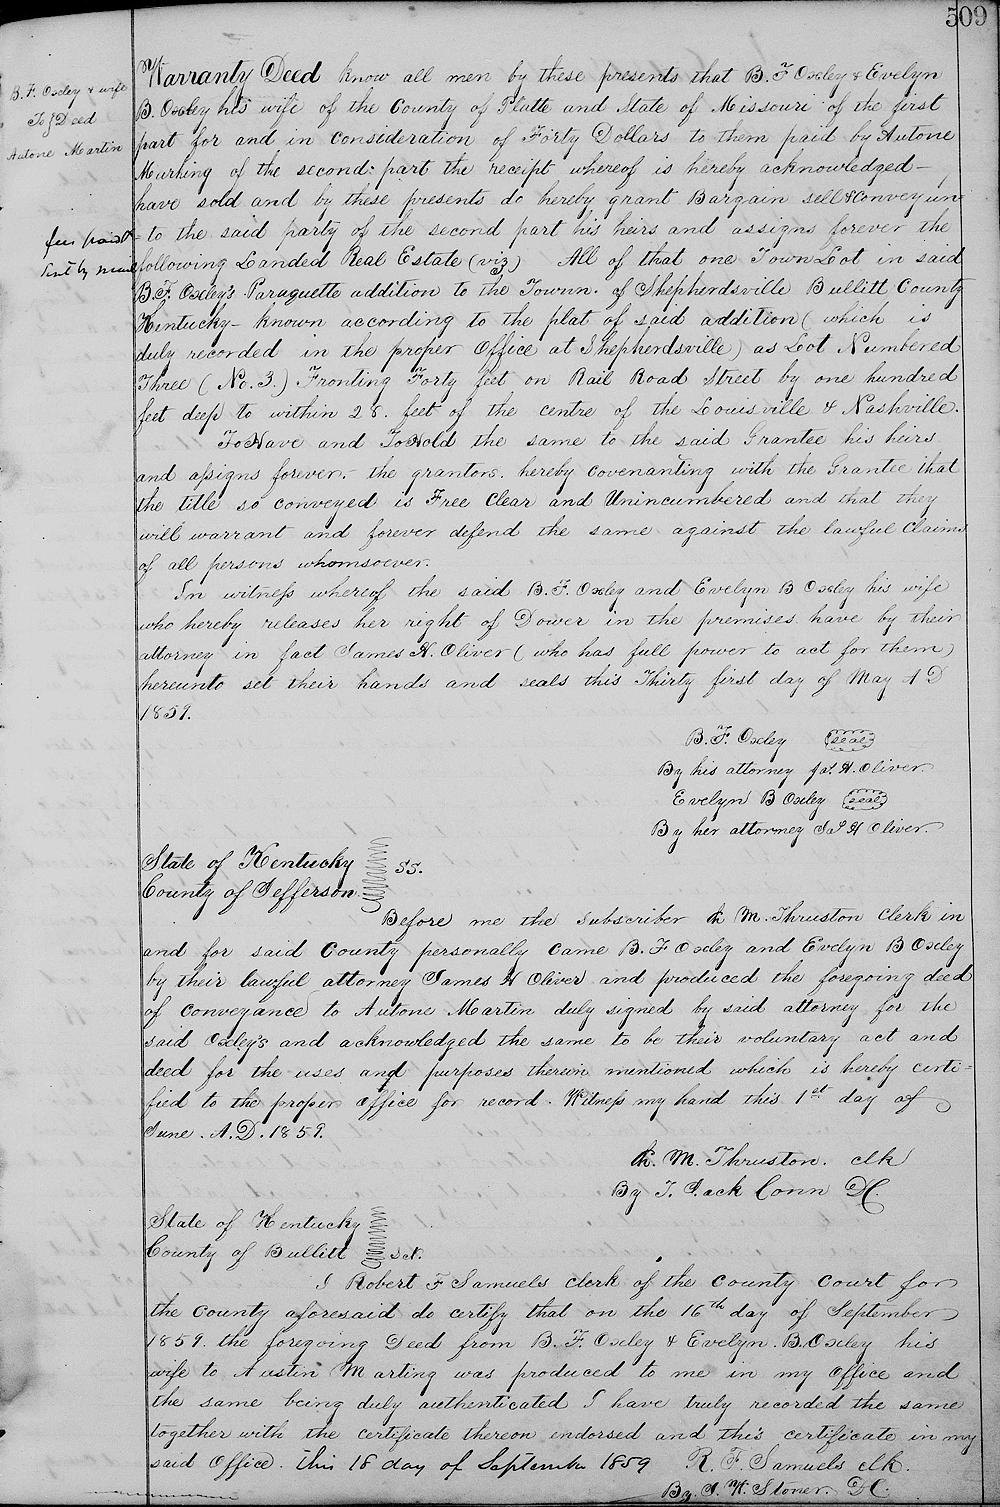 509
B. F. Oxley & wife
To } Deed
Autone Martin
fees paid
Sent by mail
Warranty Deed Know all men by these presents that B. F Oxley & Evelyn
B. Oxley his wife of the County of Platte and State of Missouri of the first
part for and in consideration of Forty Dollars to them paid by Autone
Murhing of the second part the receipt whereof is hereby acknowledged-
have sold and by these presents do hereby grant Bargain sell & Convey un
to the said party of the second part his heirs and assigns forever the
following Landed Real Estate (viz) All of that one Town Lot in said
B. F. Oxley's Paraquette addition to the Town. of Shepherdsville Bullitt County
Kentucky- known according to the plat of said addition (which is
duly recorded in the proper Office at Shepherdsville) as Lot Numbered
Three (No. 3.) Fronting Forty feet on Rail Road Street by one hundred
feet deep to within 28. feet of the centre of the Louisville & Nashville.
To Have and To Hold the same to the said Grantee his heirs
and assigns forever.- the grantors. hereby covenanting with the Grantee that
the title so conveyed is Free Clear and Unincumbered and that they
will warrant and forever defend the same against the lawful Claims
of all persons whomsoever.
In witness whereof the said B. F. Oxley and Evelyn B Oxley his wife
who hereby releases her right of Dower in the premises have by their
attorney in fact James H. Oliver (who has full power to act for them)
hereunto set their hands and seals this Thirty first day of May A D
1859.
B. F. Oxley (seal)
By his attorney Jas. H. Oliver.
Evelyn B Oxley (seal)
By her attorney Jas H Oliver.
State of Kentucky
County of Jefferson } SS.
Before me the Subscriber Ch M. Thruston Clerk in
and for said County personally came B. F Oxley and Evelyn B Oxley
by their lawful attorney James H Oliver and produced the foregoing deed
of Conveyance to Autone Martin duly signed by said attorney for the
said Oxley's and acknowledged the same to be their voluntary act and
deed for the uses and purposes therein mentioned which is hereby certi=
fied to the proper Office for record. Witness my hand this 1st day of
June. A.D. 1859.
Ch. M. Thruston. clk
By T. Jack Conn DC.
State of Kentucky
County of Bullitt } Sct.
I Robert F Samuels Clerk of the County Court for
the County aforesaid do certify that on the 16th day of September
1859. the foregoing Deed from B. F. Oxley & Evelyn. B. Oxley his
wife to Austin Marting was produced to me in my Office and
the same being duly authenticated I have truly recorded the same
together with the certificate thereon endorsed and this certificate in my
said Office. this 18 day of September 1859 R. F. Samuels clk.
By. J. W. Stoner. DC.